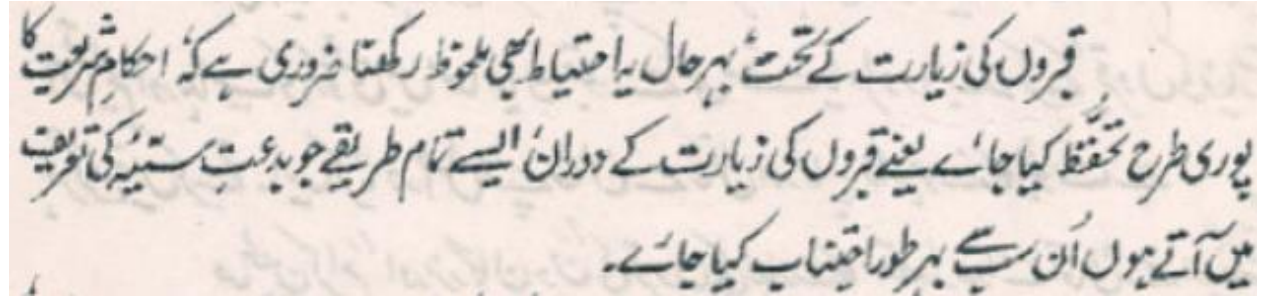 قبروں کی زیارت کے تحت، بہرحال یہ احتیاط بھی ملحوظ رکھنا ضروری ہے کہ احکامِ شریعت کا
پوری طرح تحفّظ کیا جائے یعنے قبروں کی زیارت کے دوران ایسے تمام طریقے جو بدعتِ سئیہ کی تعریف
میں آتے ہوں اُن سب سے بہر طور اجتناب کیا جائے۔